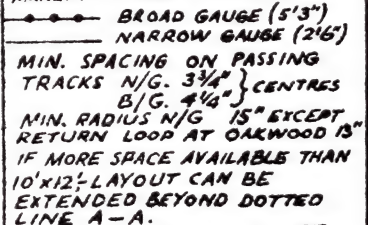 BROAD GAUGE (5'3")
NARROW GAUGE (2'6")
MIN. SPACING ON PASSING
TRACKS N/G. 3¾" } CENTRES
B/G. 4¼"
MIN. RADIUS N/G 15" EXCEPT
RETURN LOOP AT OAKWOOD 13"
IF MORE SPACE AVAILABLE THAN
10'x12', LAYOUT CAN BE
EXTENDED BEYOND DOTTED
LINE A-A.